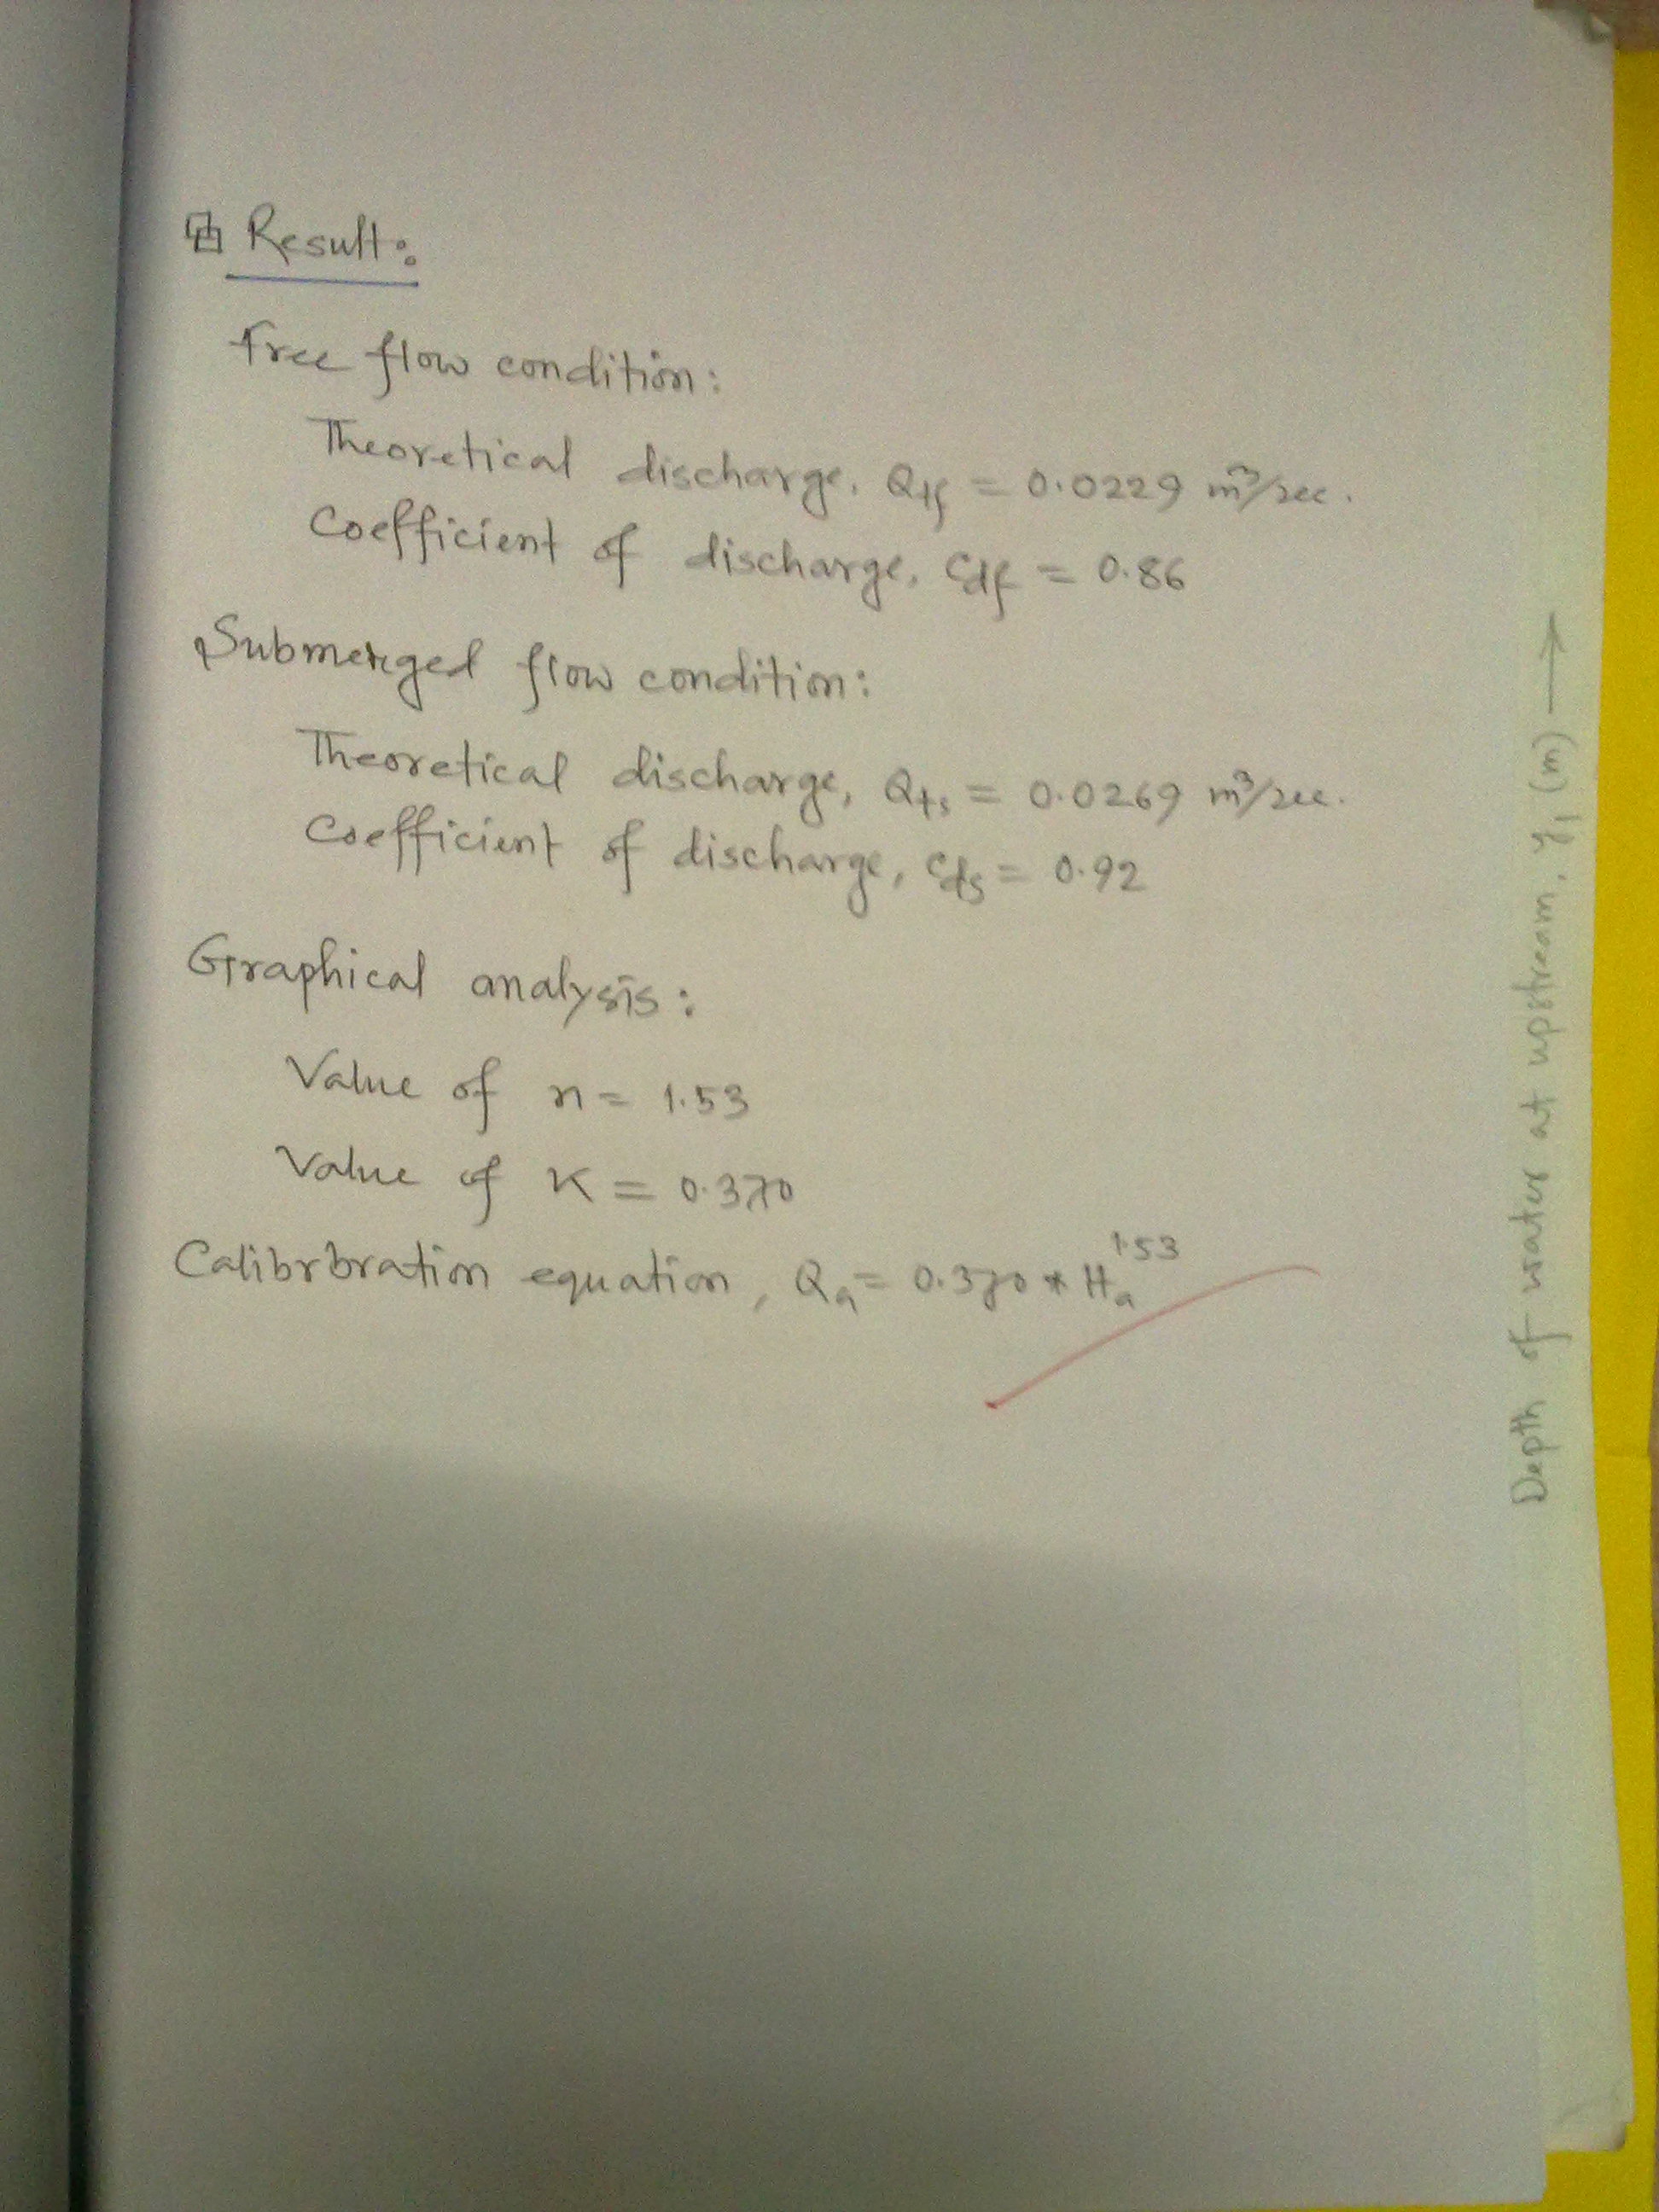 Result:
Free flow condition:
Theoretical discharge, Qtf = 0.0229 m³/sec.
Coefficient of discharge, Cdf = 0.86
Submerged flow condition:
Theoretical discharge, Qts = 0.0269 m³/sec.
Coefficient of discharge, Cds = 0.92
Graphical analysis:
Value of n = 1.53
Value of K = 0.370
Calibrbration equation, Qa = 0.370 * Ha^1.53
Depth of water at upstream, y₁ (m) →